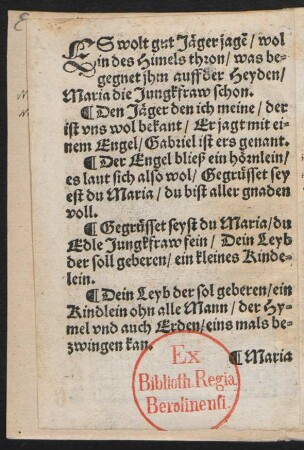 E
ES wolt gut Jäger jagē/ wol
in des Himels thron/ was be-
gegnet jhm auff der Heyden/
Maria die Jungkfraw schon.
¶ Den Jäger den ich meine/ der
ist vns wol bekant/ Er jagt mit ei-
nem Engel/ Gabriel ist ers genant.
¶ Der Engel bließ ein hörnlein/
es laut sich also wol/ Gegrüsset sey
est du Maria/ du bist aller gnaden
voll.
¶ Gegrüsset seyst du Maria/ du
Edle Jungkfraw fein/ Dein Leyb
der soll geberen/ ein kleines Kinde-
lein.
¶ Dein Leyb der sol geberen/ ein
Kindlein ohn alle Mann/ der Hy-
mel vnd auch Erden/ eins mals be-
zwingen kan.
¶ Maria
Ex
Biblioth. Regia
Berolinensi.